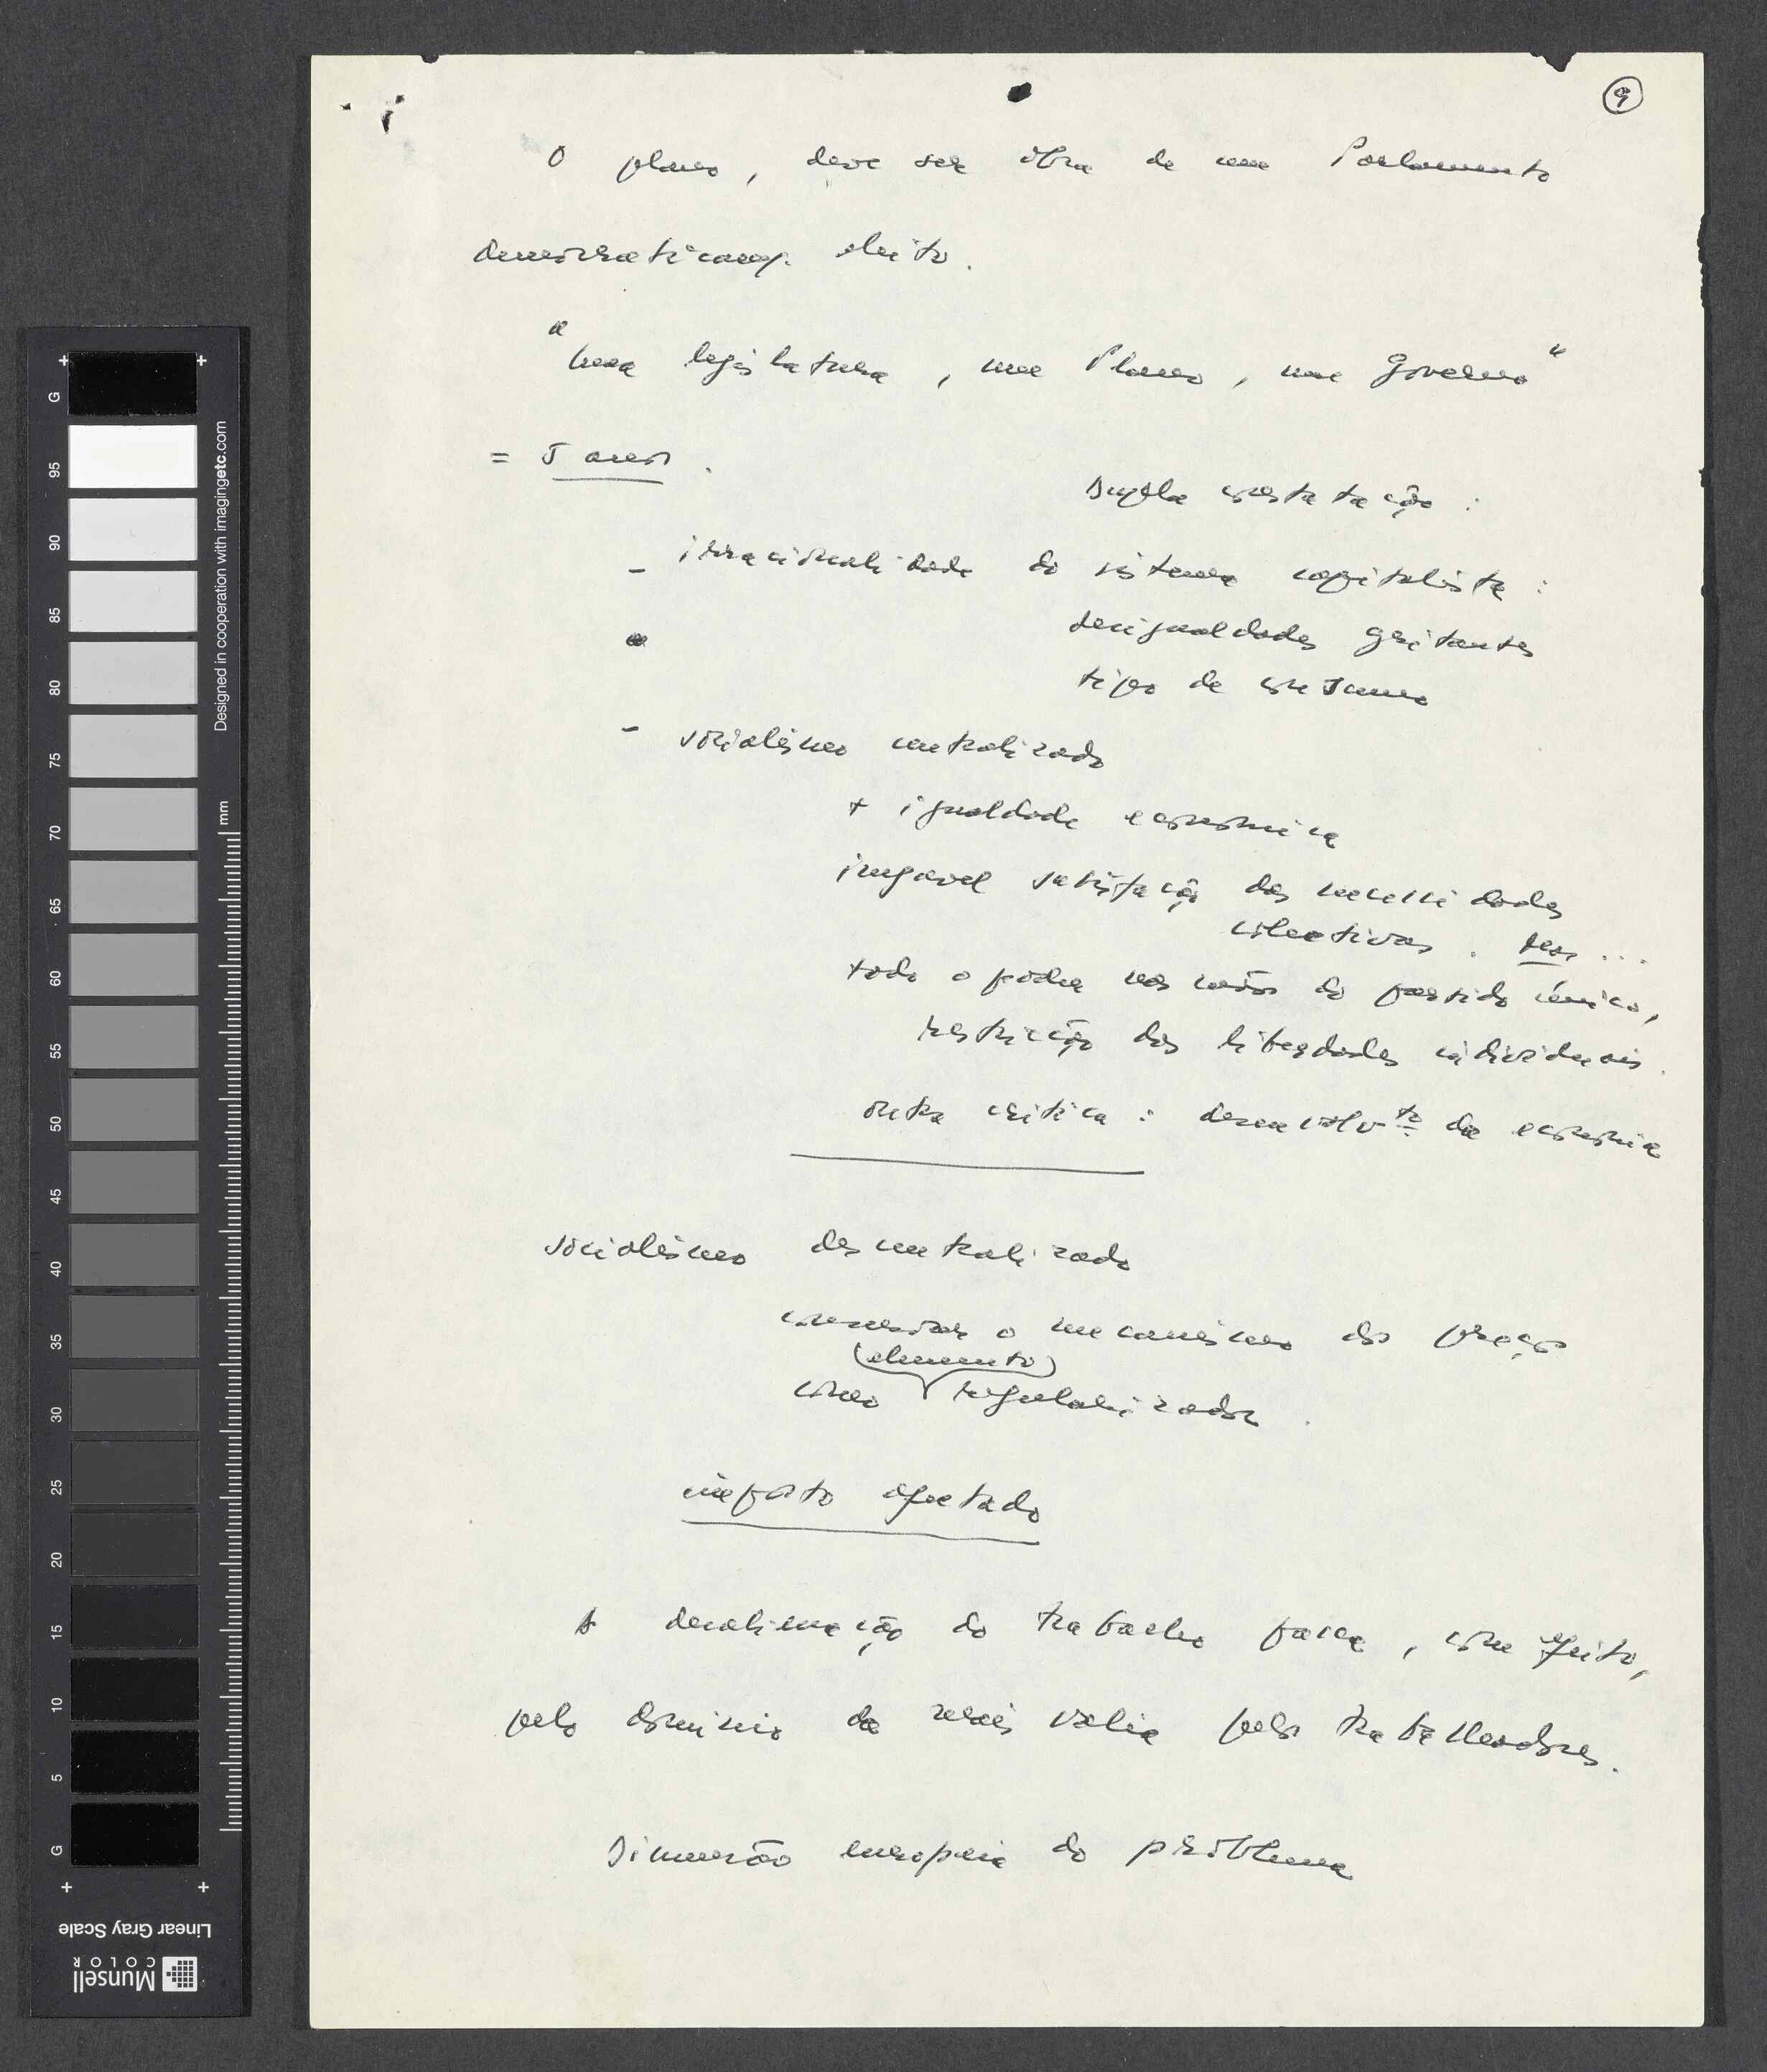 9
O plano, deve ser obra de um Parlamento
democraticam. eleito.
"Uma legislatura, um Plano, um Governo"
= 5 anos.
Dupla constatação :
- irracionalidade do sistema capitalista :
desigualdades gritantes
tipo de consumo
- socialismo centralizado
+ igualdade económica
inegavel satisfação das necessidades
colectivas. Mas ...
todo o poder nas mãos do partido único,
restricção das liberdades individuais.
outra critica : desenvolvto da economia
socialismo descentralizado
conservar o mecanismo do preço
(elemento)
como regularizador.
imposto afectado
A desalienação do trabalho passa, com efeito,
pelo dominio da mais valia pelos trabalhadores.
Dimensão europeia do problema
G 95 90 85 80 75 70 65 60 55 50 45 40 35 30 25 20 15 10 5 G
Designed in cooperation with imagingetc.com
mm
Linear Gray Scale
Munsell
COLOR